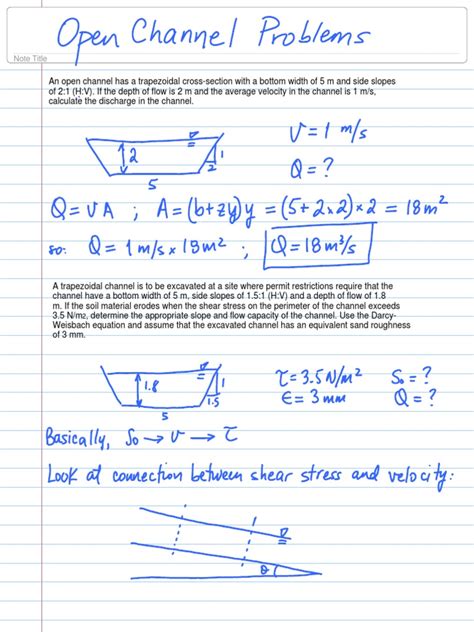 Open Channel Problems
Note Title
An open channel has a trapezoidal cross-section with a bottom width of 5 m and side slopes
of 2:1 (H:V). If the depth of flow is 2 m and the average velocity in the channel is 1 m/s,
calculate the discharge in the channel.
2
1
2
5
V = 1 m/s
Q = ?
Q = VA ; A = (b+zy)y = (5+2×2)×2 = 18 m²
so: Q = 1 m/s × 18 m² ; Q = 18 m³/s
A trapezoidal channel is to be excavated at a site where permit restrictions require that the
channel have a bottom width of 5 m, side slopes of 1.5:1 (H:V) and a depth of flow of 1.8
m. If the soil material erodes when the shear stress on the perimeter of the channel exceeds
3.5 N/m2, determine the appropriate slope and flow capacity of the channel. Use the Darcy-
Weisbach equation and assume that the excavated channel has an equivalent sand roughness
of 3 mm.
1.8
1
1.5
5
τ = 3.5 N/m² S₀ = ?
ϵ = 3 mm Q = ?
Basically, S₀ → V → τ
Look at connection between shear stress and velocity:
θ